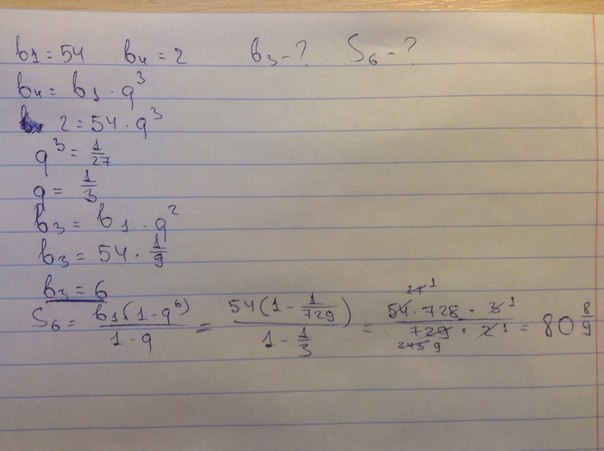 b1=54 b4=2 b3-? S6-?
b4=b1·q³
2=54·q³
q³=1/27
q=1/3
b3=b1·q²
b3=54·1/9
b3=6
S6=b1(1-q⁶)/1-q=54(1-1/729)/1-1/3=54·728·3/729·2=80 8/9